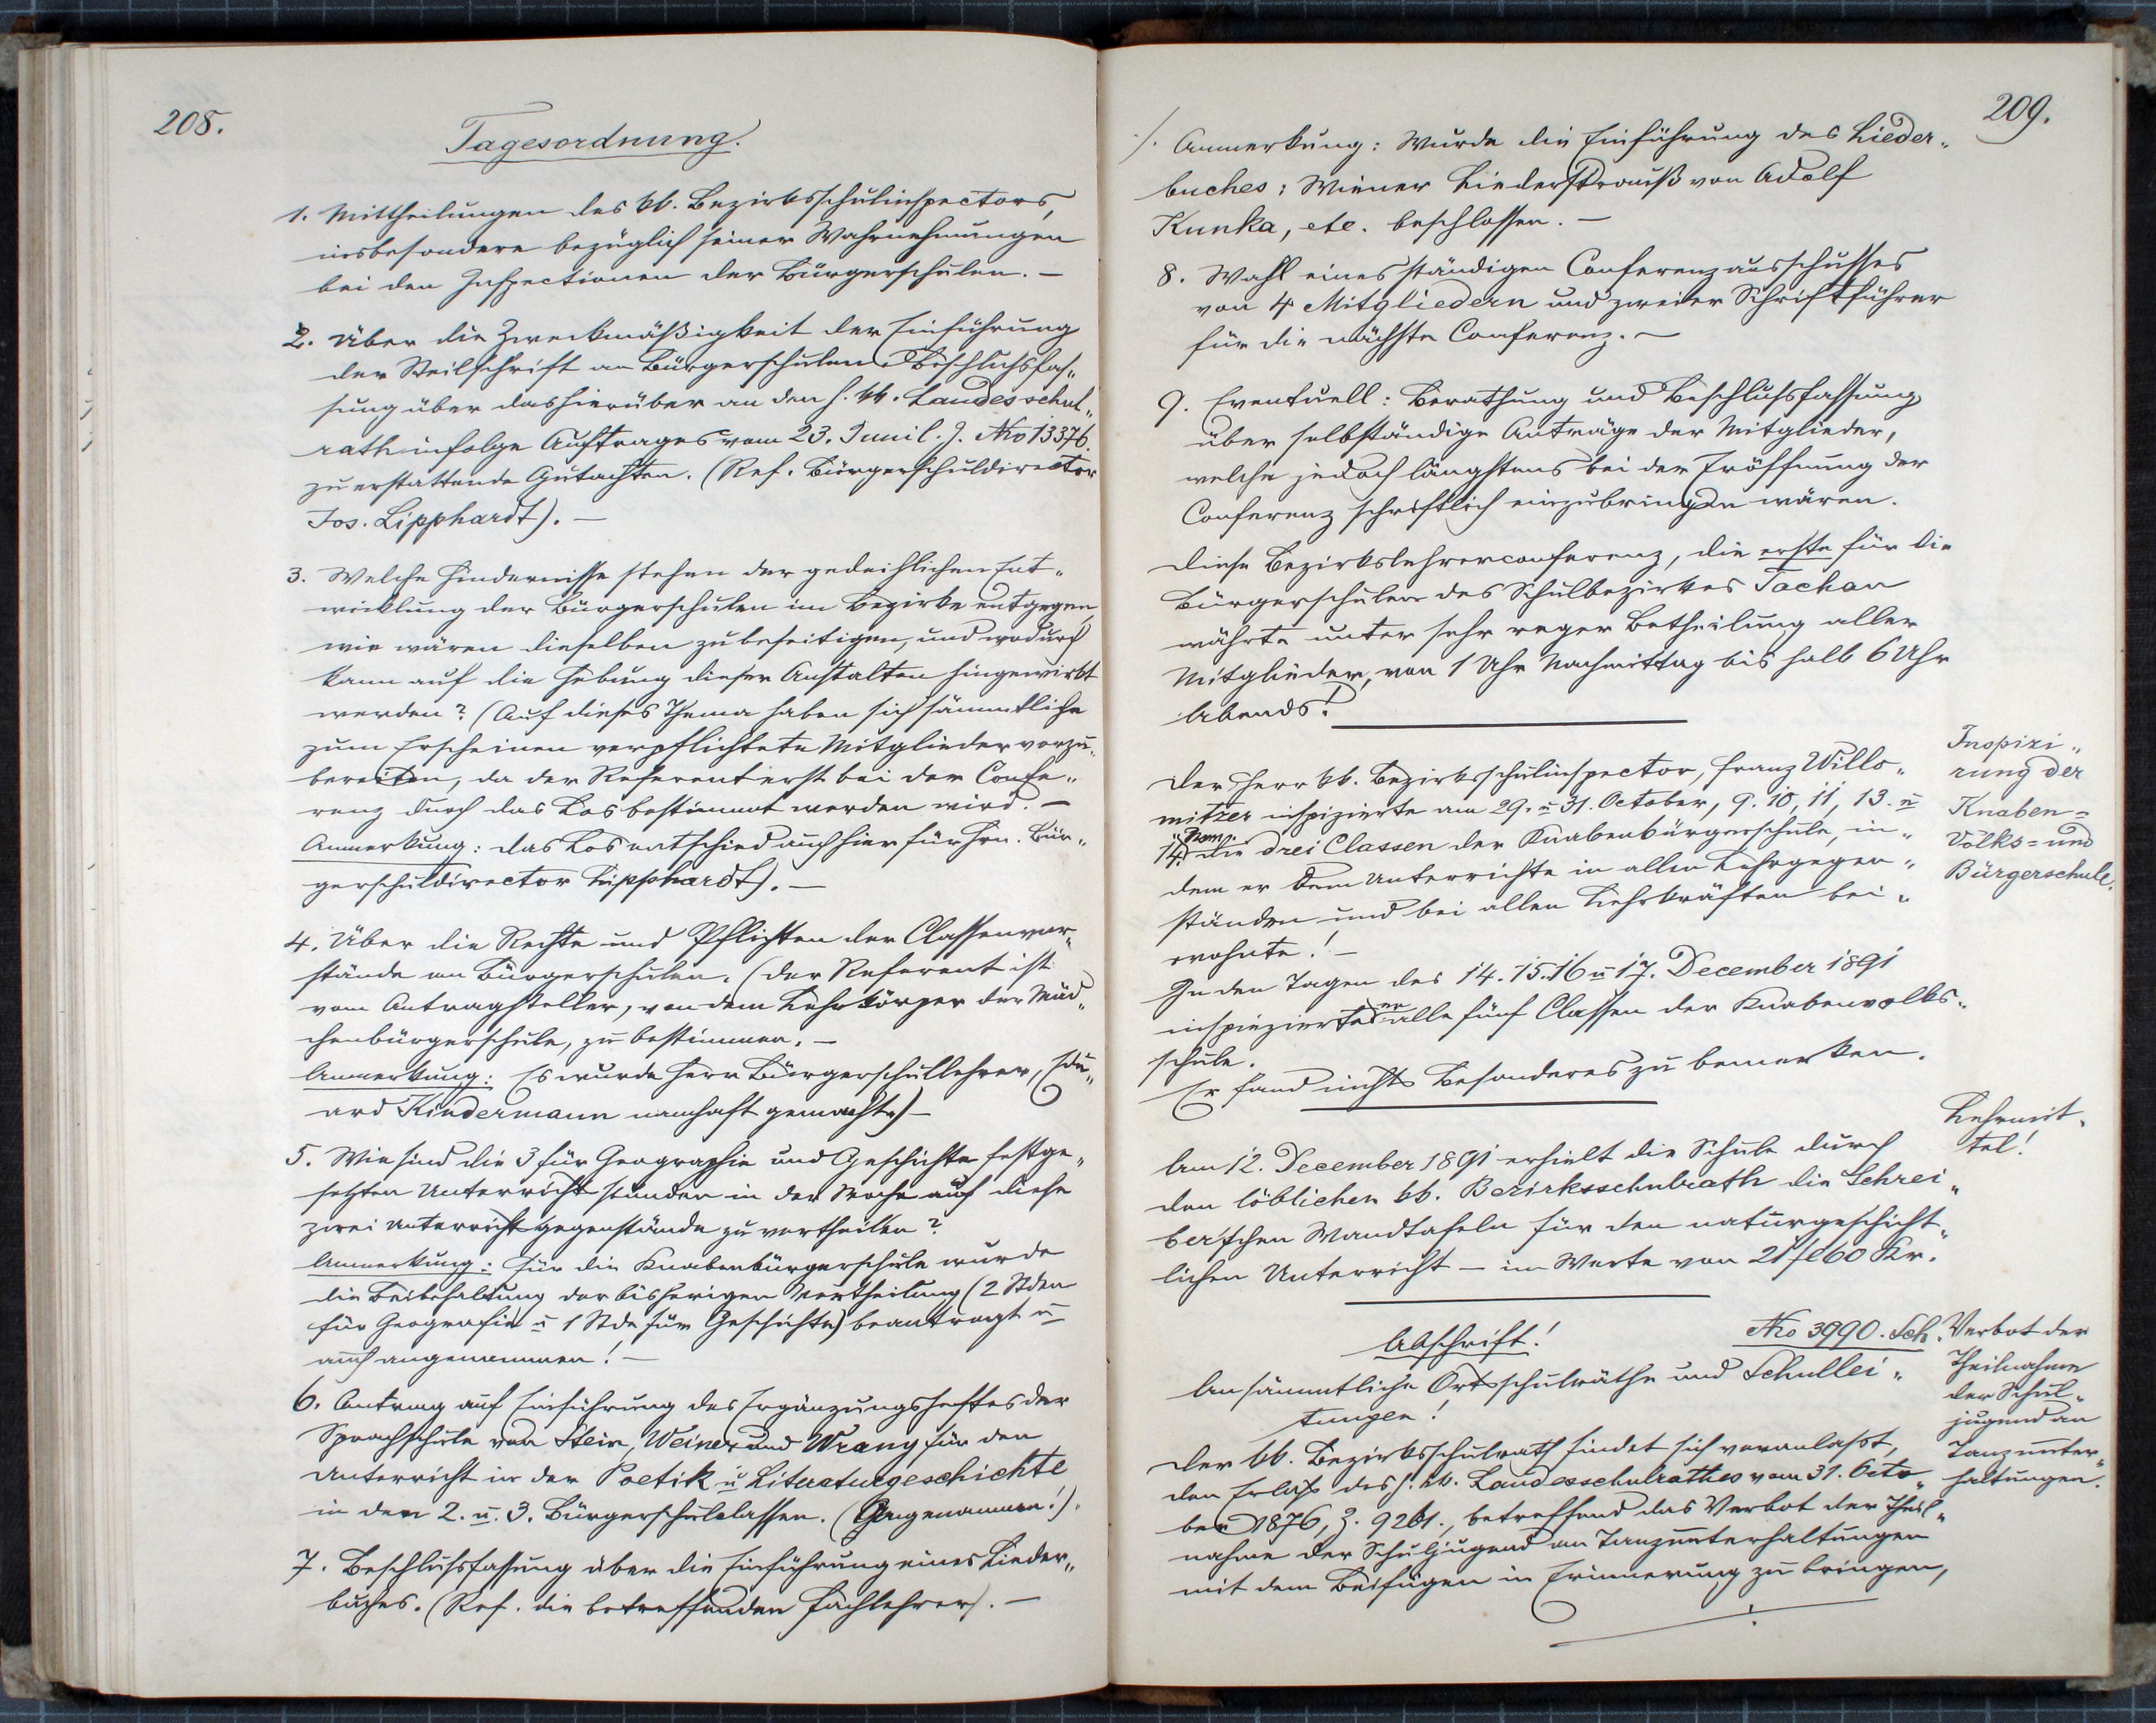 208.
Tagesordnung.
1. Mittheilungen des kk. Bezirksschulinspectors,
insbesondere bezüglich seiner Wahrnehmungen
bei den Inspectionen der Bürgerschulen. —
2. Über die Zweckmäßigkeit der Einführung
der Steilschrift an Bürgerschulen. Beschlußfas„
sung über das hierüber an den h. kk. Landesschul„
rath infolge Auftrages vom 23. Juni l. J. Nro 13376.
zu erstattende Gutachten. (Ref. Bürgerschuldirector
Jos. Lipphardt). —
3. Welche Hindernisse stehen der gedeihlichen Ent„
wicklung der Bürgerschulen im Bezirke entgegen,
wie wären dieselben zu beseitigen, und wodurch
kann auf die Hebung dieser Anstalten hingewirkt
werden? (Auf dieses Thema haben sich sämmtliche
zum Erscheinen verpflichtete Mitglieder vorzu„
bereiten, da der Referent erst bei der Confe„
renz durch das Los bestimmt werden wird. —
Anmerkung: Das Los entschied auch hier für Hrn. Bür„
gerschuldirector Lipphardt). —
4. Über die Rechte und Pflichten der Classenvor„
stände an Bürgerschulen. (Der Referent ist
vom Antragsteller, von dem Lehrkörper der Mäd„
chenbürgerschule, zu bestimmen. —
Anmerkung: Es wurde Herr Bürgerschullehrer, Edu„
ard Kindermann namhaft gemacht.) —
5. Wie sind die 3 für Geographie und Geschichte festge„
setzten Unterrichtsstunden in der Woche auf diese
zwei Unterrichtsgegenstände zu vertheilen?
Anmerkung: Für die Knabenbürgerschule wurde
die Beibehaltung der bisherigen Vertheilung (2 Stden
für Geografie u 1 Stde für Geschichte) beantragt u
auch angenommen! —
6. Antrag auf Einführung des Ergänzungsheftes der
Sprachschule von Stein, Weiner und Wrany für den
Unterricht in der Poetik u Literaturgeschichte
in den 2. u. 3. Bürgerschulclassen. (Angenommen!).
7. Beschlußfassung über die Einführung eines Lieder„
buches. (Ref. die betreffenden Fachlehrer). —
209.
./. Anmerkung: Wurde die Einführung des Lieder„
buches: Wiener Liederstrauß von Adolf
Kunka, etc. beschlossen. —
8. Wahl eines ständigen Conferenzausschusses
von 4 Mitgliedern und zweier Schriftführer
für die nächste Conferenz. —
9. Eventuell: Berathung und Beschlußfassung
über selbständige Anträge der Mitglieder,
welche jedoch längstens bei der Eröffnung der
Conferenz schriftlich einzubringen wären.
Diese Bezirkslehrerconferenz, die erste für die
Bürgerschulen des Schulbezirkes Tachau
währte unter sehr reger Betheilung aller
Mitglieder, von 1 Uhr Nachmittag bis halb 6 Uhr
Abends!
Inspizi„
rung der
Knaben=
Volks= und
Bürgerschule.
Der Herr kk. Bezirksschulinspector, Franz Willo„
mitzer inspizierte am 29. u 31. October, 9. 10, 11, 13. u
14. die drei Classen der Knabenbürgerschule, in„
dem er dem Unterrichte in allen Lehrgegen„
ständen und bei allen Lehrkräften bei„
wohnte! —
In den Tagen des 14. 15. 16 u 17. December 1891
inspizierte er alle fünf Classen der Knabenvolks„
schule.
Er fand nichts Besonderes zu bemerken.
Lehrmit„
tel!
Am 12. December 1891 erhielt die Schule durch
den löblichen kk. Bezirksschulrath die Schrei„
ber'schen Wandtafeln für den naturgeschicht„
lichen Unterricht — im Werte von 21 fl 60 Kr.
Abschrift!
Nro 3990. Sch.
Verbot der
Theilnahme
der Schul„
jugend an
Tanzunter„
haltungen.
An sämmtliche Ortsschulräthe und Schullei„
tungen!
Der kk. Bezirksschulrath findet sich veranlaßt,
den Erlaß des h. kk. Landesschulrathes vom 31. Octo„
ber 1876, Z. 9261., betreffend das Verbot der Theil„
nahme der Schuljugend an Tanzunterhaltungen
mit dem Beifügen in Erinnerung zu bringen,
./.